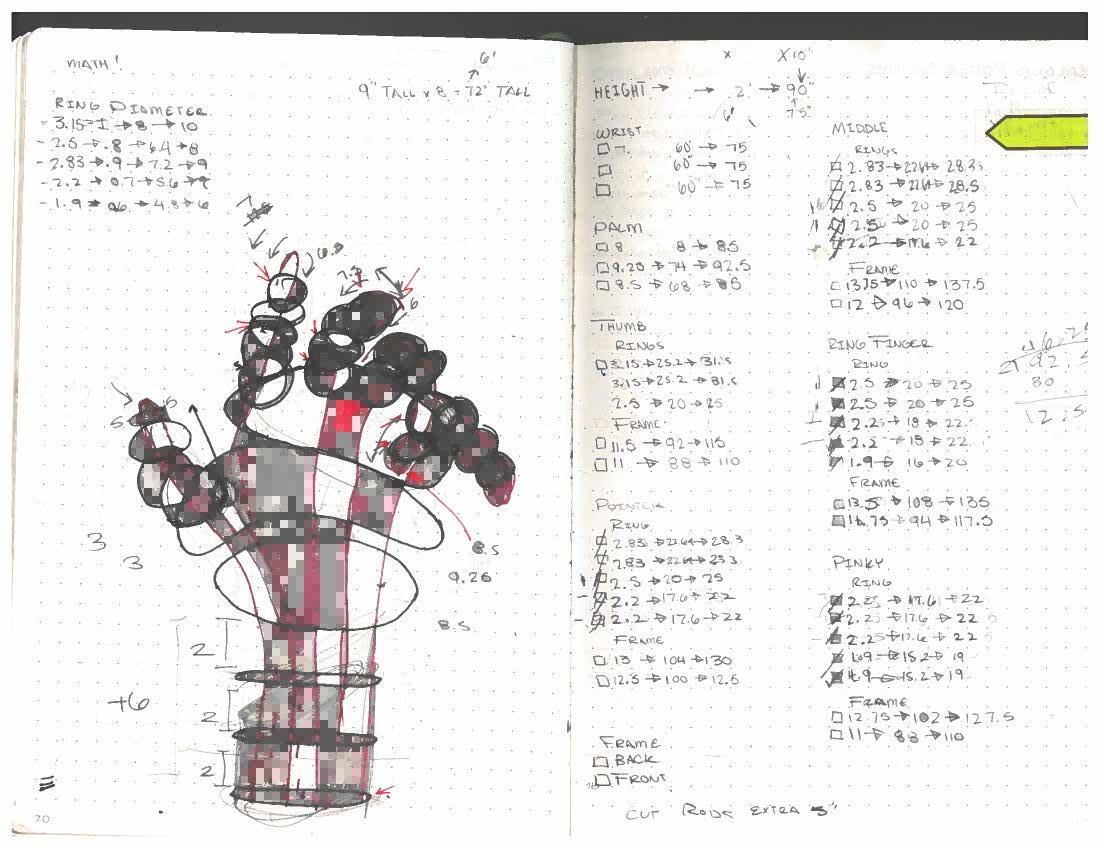 MATH!
6'
9" TALL x 8 = 72" TALL
RING DIAMETER
- 3.15 → 1 → 8 → 10
- 2.5 → .8 → 6.4 → 8
- 2.83 → .9 → 7.2 → 9
- 2.2 → 0.7 → 5.6 →
- 1.9 → .06 → 4.8 → 6
3
3
8.5
9.26
8.5
2
+6
2
2
70
x X10"
HEIGHT → → .2' → 90"
6' 75"
WRIST
☐ 7. 60" → 75
☐ 60" → 75
☐ 60" → 75
PALM
☐ 8 8 → 85
☐ 9.25 → 74 → 92.5
☐ 8.5 → 68 → 85
THUMB
RINGS
☐ 3.15 → 25.2 → 31.5
3.15 → 25.2 → 31.5
2.5 → 20 → 25
FRAME
☐ 11.5 → 92 → 115
☐ 11 → 88 → 110
POINTER
RING
☐ 2.83 → 22.64 → 28.3
☐ 2.83 → 22.64 → 28.3
☐ 2.5 → 20 → 25
☐ 2.2 → 17.6 → 22
☐ 2.2 → 17.6 → 22
FRAME
☐ 13 → 104 → 130
☐ 12.5 → 100 → 12.5
FRAME
☐ BACK
☐ FRONT
MIDDLE
RINGS
☐ 2.83 → 22.64 → 28.3
☐ 2.83 → 22.64 → 28.5
☐ 2.5 → 20 → 25
☐ 2.5 → 20 → 25
☐ 2.2 → 17.6 → 22
FRAME
☐ 13.75 → 110 → 137.5
☐ 12 → 96 → 120
RING FINGER
RING
2.5 → 20 → 25
2.5 → 20 → 25
2.25 → 18 → 22.
2.2 → 18 → 22.
1.9 → 16 → 20
FRAME
☐ 13.5 → 108 → 135
☐ 11.75 → 94 → 117.5
PINKY
RING
2.25 → 17.6 → 22
2.25 → 17.6 → 22
2.25 → 17.6 → 22
1.9 → 15.2 → 19
1.9 → 15.2 → 19
FRAME
☐ 12.75 → 102 → 127.5
☐ 11 → 88 → 110
92.5
80
12.5
CUT RODS EXTRA 5"